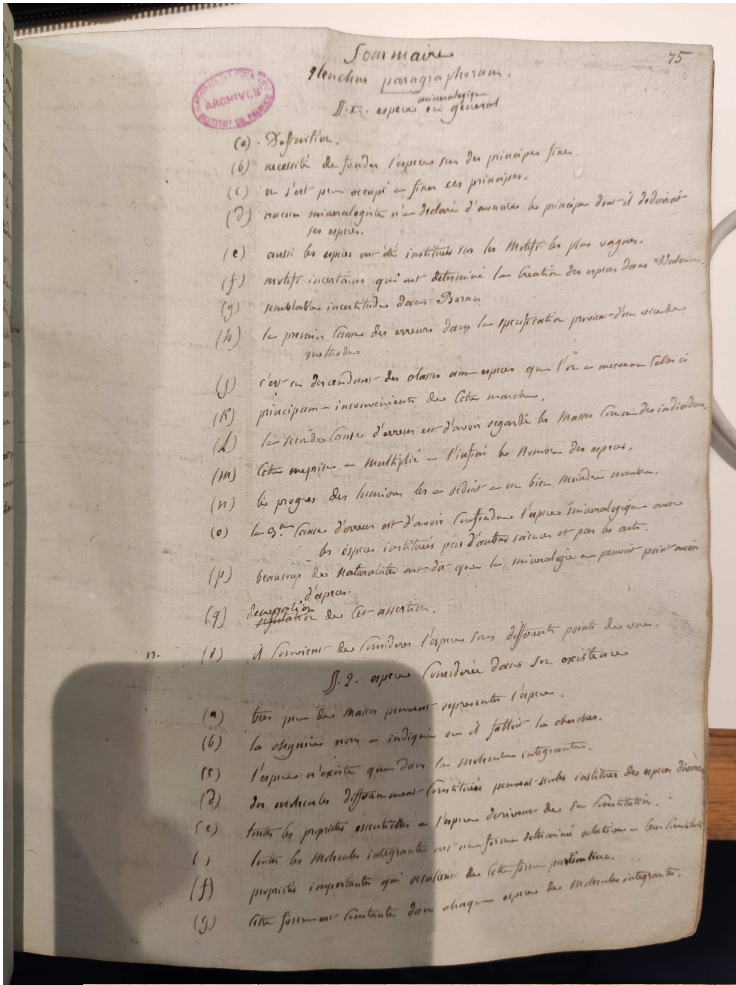 75
Sommaire
Elenchus paragraphorum.
§. I. espece mineralogique en general
ARCHIVES
(a) - Definition.
(b) necessité de fonder l'espece sur des principes fixes.
(c) on s'est peu occupé a fixer ces principes.
(d) aucun mineralogiste n'a declaré d'avance le principe dont il deduiroit
ses especes.
(e) aussi les especes ont été instituées sur les motifs les plus vagues.
(f) motifs incertains qui ont determiné la creation des especes dans
(g) semblable incertitude dans Born
(h) la premiere cause des erreurs dans la specification provient d'un vice de
methode
(j) c'est en descendant des classes aux especes que l'on a meconnu celles ci
(k) principaux inconvenients de cette marche.
(l) la seconde cause d'erreur est d'avoir regardé les masses comme des individus.
(m) cette meprise a multiplié a l'infini le nombre des especes.
(n) le progres des lumieres les a reduit a un bien moindre nombre.
(o) la 3.me cause d'erreur est d'avoir confondu l'espece mineralogique avec
les especes instituées par d'autres sciences et par les arts.
(p) beaucoup de naturalistes ont dit que la mineralogie ne pouvoit point avoir
d'especes.
(q) de cette assertion.
17. (r) il convient de considerer l'espece sous differents points de vue.
§. 2. espece considerée dans son existence
(a) tres peu de masses peuvent representer l'espece.
(b) la chymie nous a indiqué ou il falloit la chercher.
(c) l'espece n'existe que dans la molecule integrante.
(d) des molecules differemment constituées peuvent seules instituer des especes diverses
(e) toutes les proprietés essentielles a l'espece derivent de sa constitution.
( ) toutes les molecules integrantes ont une forme determinée relative a leur constitution
(f) proprietés importantes qui resultent de cette forme particuliere.
(g) cette forme est constante dans chaque espece de molecules integrantes.